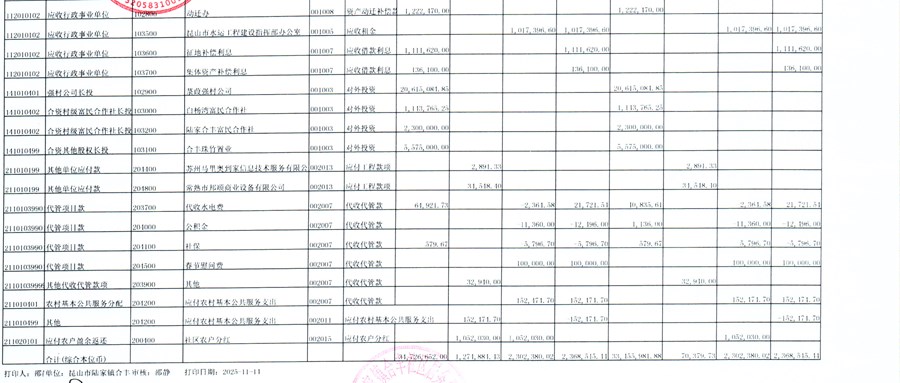 112010102 应收行政事业单位 动迁办 001008 资产动迁补偿款 1,222,470.00 1,222,470.00
112010102 应收行政事业单位 103500 昆山市水运工程建设指挥部办公室 001005 应收租金 1,017,396.60 1,017,396.60 1,017,396.60 1,017,396.60
112010102 应收行政事业单位 103600 征地补偿利息 001007 应收借款利息 1,111,620.00 1,111,620.00 1,111,620.00
112010102 应收行政事业单位 103700 集体资产补偿利息 001007 应收借款利息 136,100.00 136,100.00 136,100.00
141010401 强村公司长投 102900 强村公司 001003 对外投资 20,615,081.85 20,615,081.85
141010402 合资村级富民合作社长投 103000 白杨湾富民合作社 001003 对外投资 1,143,765.25 1,143,765.25
141010402 合资村级富民合作社长投 103200 陆家合丰富民合作社 001003 对外投资 2,300,000.00 2,300,000.00
141010499 合资其他股权长投 103100 合丰珠竹置业 001003 对外投资 5,575,000.00 5,575,000.00
211010199 其他单位应付款 204400 苏州马里奥到家信息技术服务有限公 002013 应付工程款项 2,891.33 2,891.33
211010199 其他单位应付款 204800 常熟市邦硕商业设备有限公司 002013 应付工程款项 31,548.40 31,548.40
2110103990 代管项目款 203700 代收水电费 002007 代收代管款 61,921.73 -2,361.58 21,721.51 -2,361.58 21,721.51
2110103990 代管项目款 204000 公积金 002007 代收代管款 -11,360.00 -12,496.00 1,136.00 -11,360.00 -12,496.00
2110103990 代管项目款 204100 社保 002007 代收代管款 579.67 -5,796.70 -5,796.70 579.67 -5,796.70 -5,796.70
2110103990 代管项目款 204500 春节慰问费 002007 代收代管款 100,000.00 100,000.00 100,000.00 100,000.00
2110103999 其他代收代管款项 203900 其他 002007 代收代管款 32,940.00 32,940.00
211010401 农村基本公共服务分配 204200 应付农村基本公共服务支出 002007 代收代管款 152,171.70 152,171.70 152,171.70 152,171.70
211010499 其他 204200 应付农村基本公共服务支出 002011 应付农村基本公共服务支出 152,171.70 -152,171.70 -152,171.70
211020101 应付农户盈余返还 200400 社区农户分红 002015 应付农户分红 1,052,030.00 1,052,030.00 1,052,030.00
合计(综合本位币) 1,271,881.43 2,302,380.02 2,368,515.11 33,155,981.88 70,379.73 2,302,380.02 2,368,515.11
单位：昆山市陆家镇合丰 审核：邵静 打印日期：2025-11-11